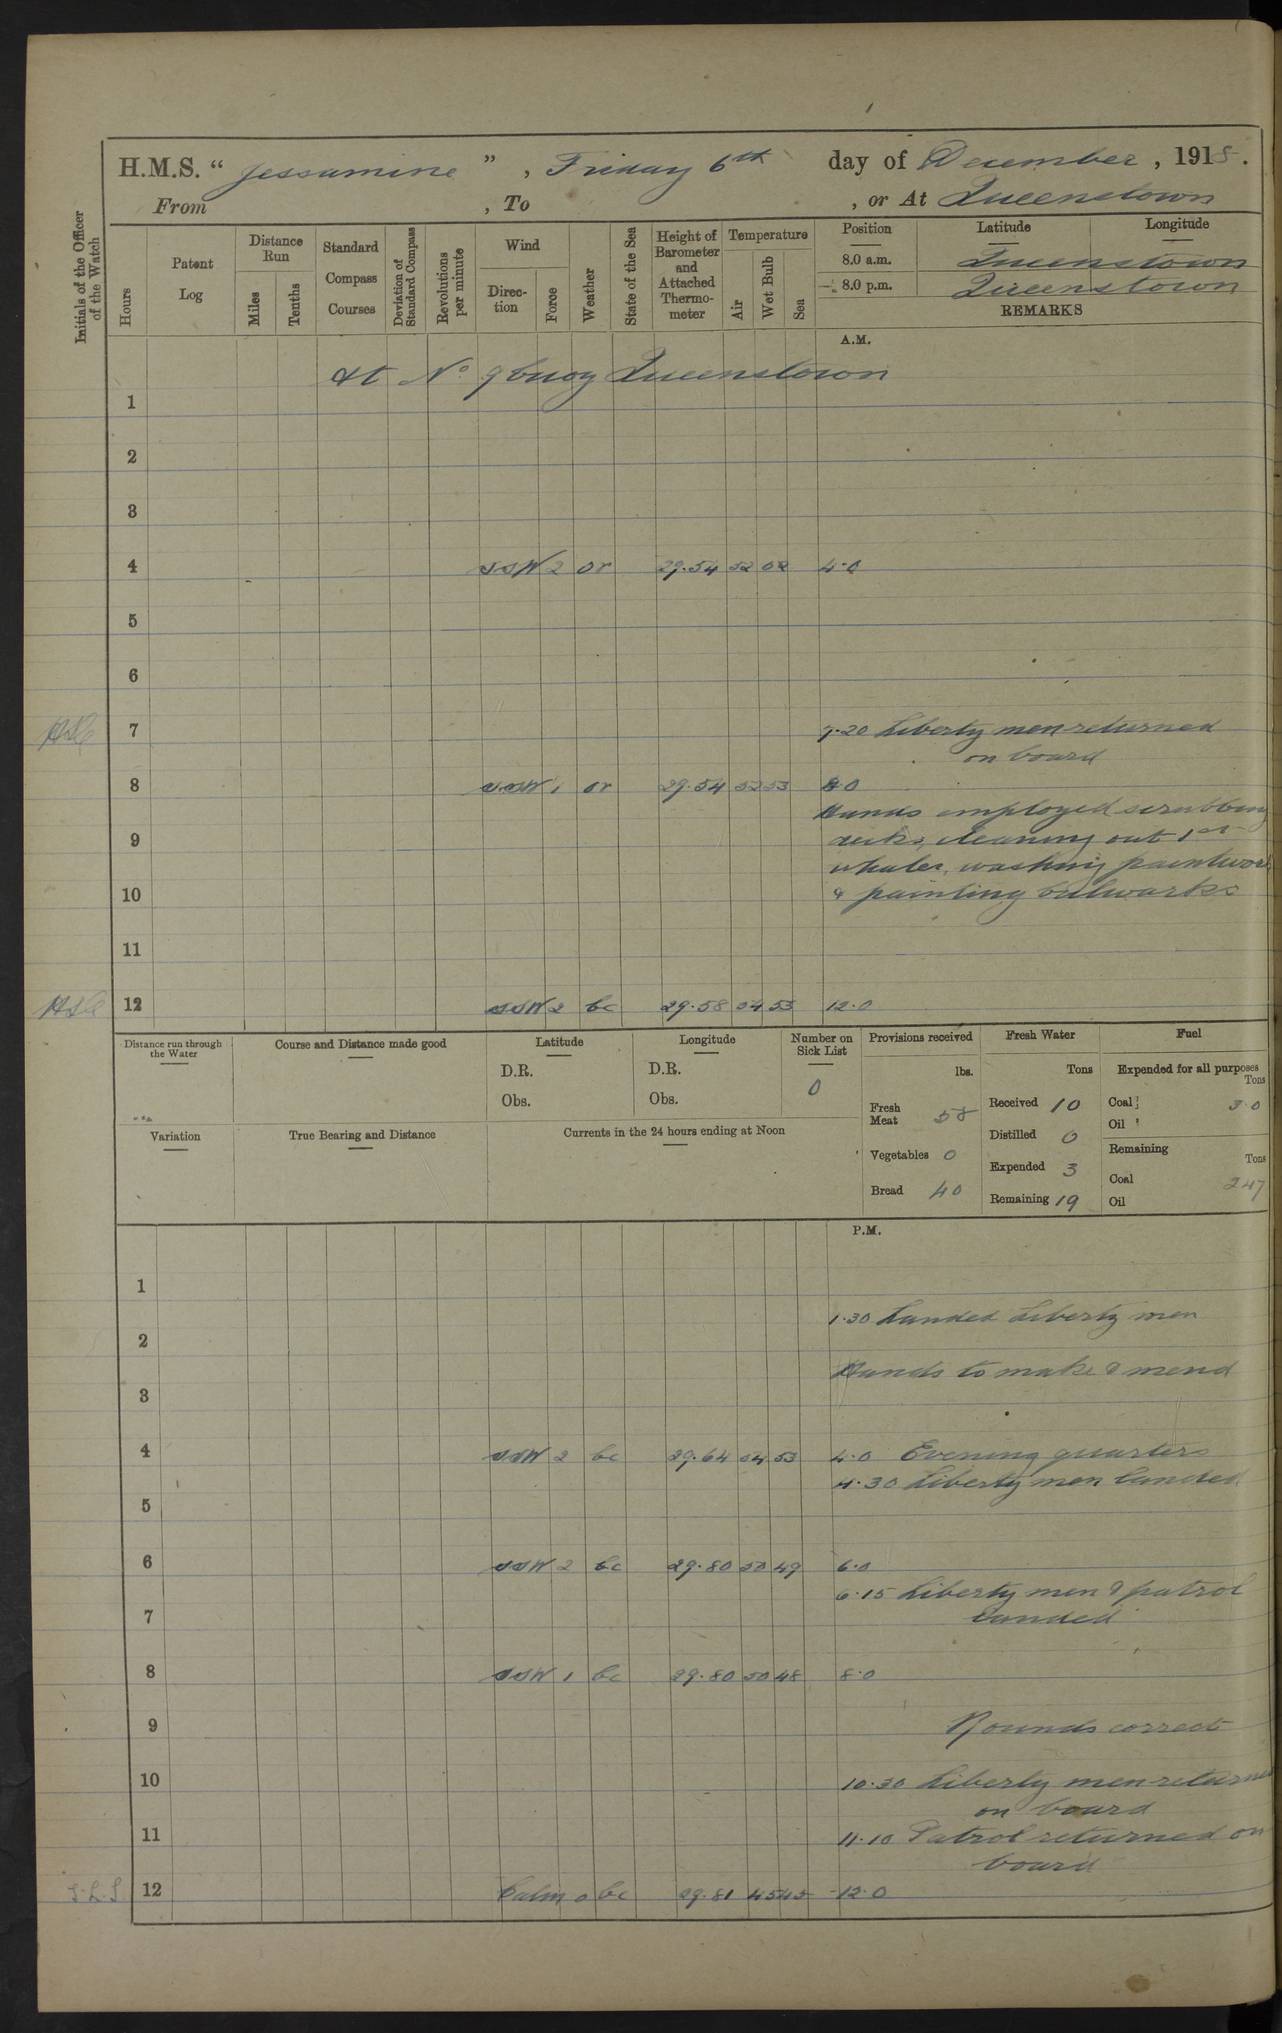 H.M.S. “ Jessamine ” , Friday 6th day of December , 1918 .
From , To , or At Queenstown
Initials of the Officer of the Watch
Hours
Patent Log
Distance Run
Miles
Tenths
Standard Compass Courses
Deviation of Standard Compass
Revolutions per minute
Wind
Direction
Force
Weather
State of the Sea
Height of Barometer and Attached Thermometer
Temperature
Air
Wet Bulb
Sea
Position Latitude Longitude
8.0 a.m. Queenstown
8.0 p.m. Queenstown
REMARKS
A.M.
At No 9 buoy Queenstown
1
2
3
4 SSW 2 or 29.54 52 52 4.0
5
6
7 7.20 Liberty men returned
on board
8 SSW 1 or 29.54 52 53 8.0
Hands employed scrubbing
9 decks, cleaning out 1st
whaler, washing paintwork
10 & painting bulwarks
11
12 SSW 2 bc 29.58 54 53 12.0
Distance run through the Water
Course and Distance made good
Latitude
D.R.
Obs.
Longitude
D.R.
Obs.
Number on Sick List
0
Provisions received
lbs.
Fresh Meat 58
Vegetables 0
Bread 40
Fresh Water
Tons
Received 10
Distilled 0
Expended 3
Remaining 19
Fuel
Expended for all purposes
Tons
Coal 3.0
Oil
Remaining
Tons
Coal 247
Oil
Variation
True Bearing and Distance
Currents in the 24 hours ending at Noon
P.M.
1
1.30 Landed Liberty men
2
Hands to make & mend
3
4 SSW 2 bc 29.64 54 53 4.0 Evening quarters
4.30 Liberty men landed
5
6 SSW 2 bc 29.80 50 49 6.0
6.15 Liberty men & patrol
7 landed
8 SSW 1 bc 29.80 50 48 8.0
9 Rounds correct
10 10.30 Liberty men returned
on board
11 11.10 Patrol returned on
board
12 Calm 0 bc 29.81 45 45 12.0